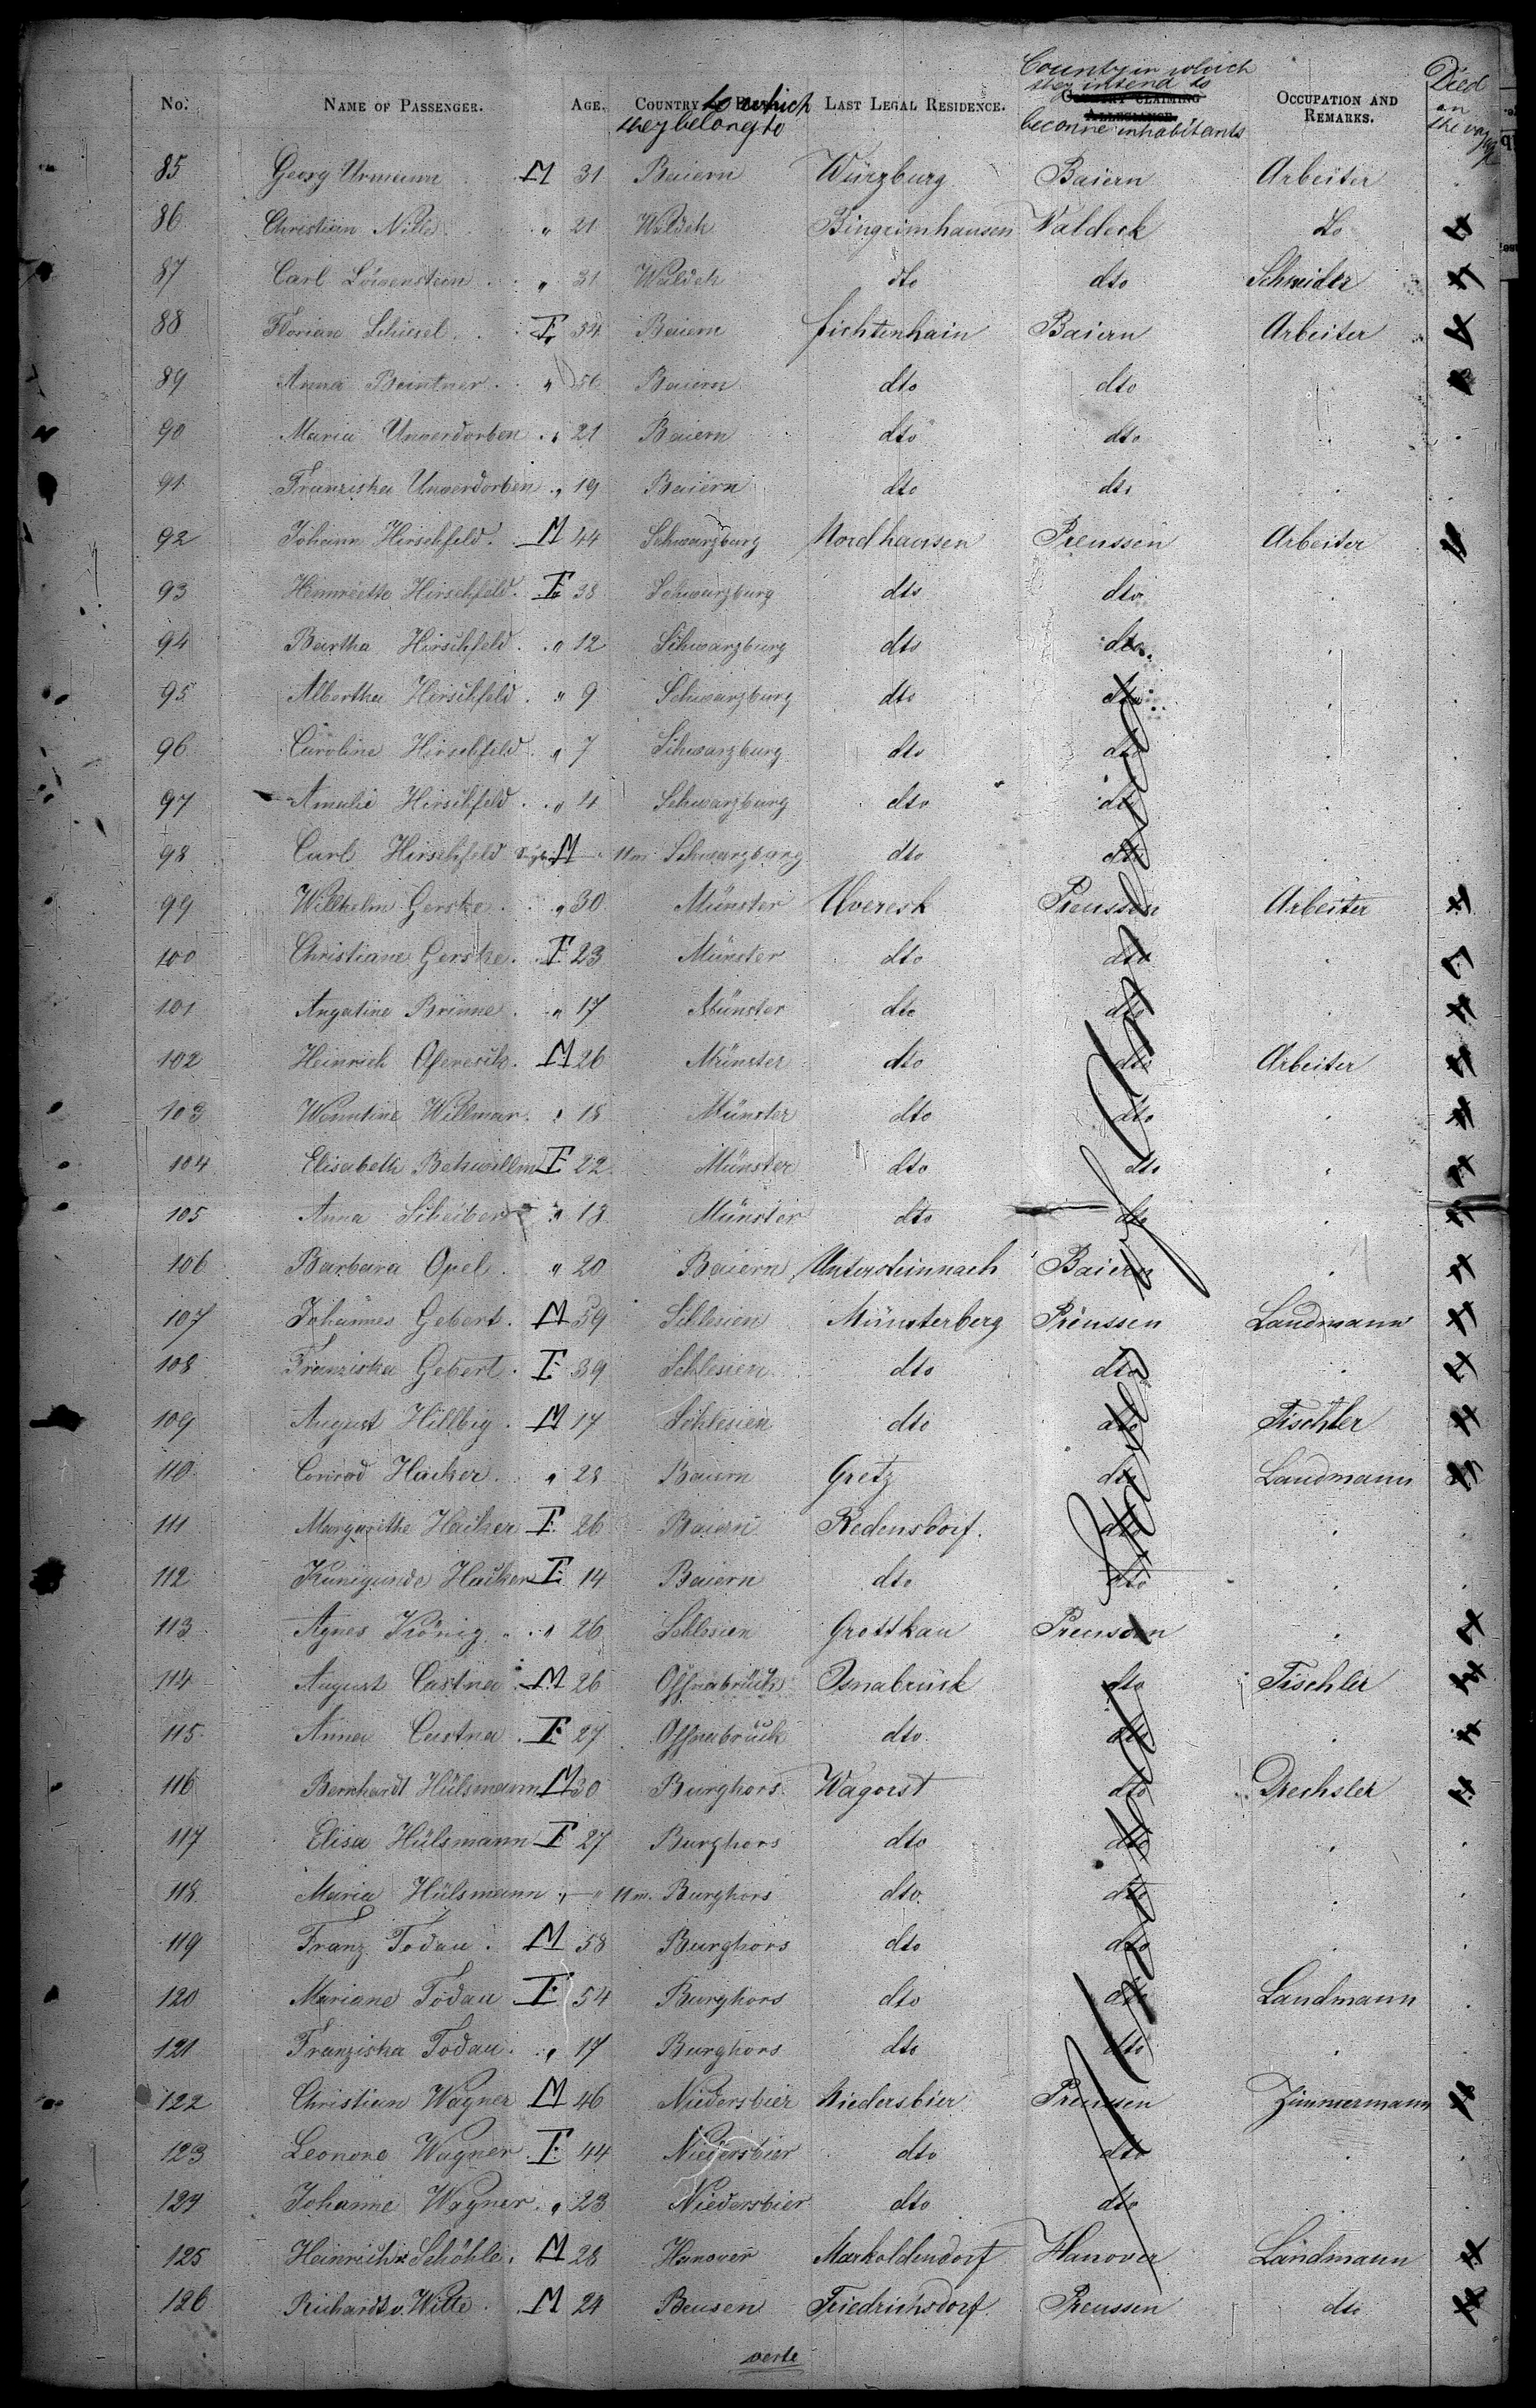 No. NAME OF PASSENGER. AGE. COUNTRY to which they belong to LAST LEGAL RESIDENCE. Country in which they intend to become inhabitants OCCUPATION AND REMARKS. Died on the voyage
85 Georg Urmann M 31 Baiern Würzburg Baiern Arbeiter
86 Christian " 21 Waldek Waldeck do
87 Carl Löwenstein " 31 Waldek dto dto Schneider
88 Florian Schiesel F 54 Baiern fichtenhain Baiern Arbeiter
89 Anna Beintner " 56 Baiern dto dto
90 Maria Unverdorben " 21 Baiern dto dto
91 Franziska Unverdorben " 19 Baiern dto dto
92 Johann Hirschfeld M 44 Schwarzburg Nordhausen Preussen Arbeiter
93 Henriette Hirschfeld F 38 Schwarzburg dto dto
94 Bertha Hirschfeld " 12 Schwarzburg dto dto
95 Albertha Hirschfeld " 9 Schwarzburg dto dto
96 Caroline Hirschfeld " 7 Schwarzburg dto dto
97 Amalie Hirschfeld " 4 Schwarzburg dto dto
98 Carl Hirschfeld M 11m Schwarzburg dto dto
99 Wilhelm Gerske " 30 Münster Preussen Arbeiter
100 Christiane Gerske F 23 Münster dto dto
101 Angatine Brinne " 17 Münster dto dto
102 Heinrich M 26 Münster dto dto Arbeiter
103 Willmar " 18 Münster dto dto
104 Elisabeth F 22 Münster dto dto
105 Anna Scheiber " 18 Münster dto dto
106 Barbara Opel " 20 Baiern Untersteinnach Baiern
107 Johannes Gebert M 39 Schlesien Münsterberg Preussen Landmann
108 Franziska Gebert F 39 Schlesien dto dto
109 August Hillbig M 17 Schlesien dto dto Tischler
110 Conrad Hacker " 28 Baiern Gretz dto Landmann
111 Margarethe Hacker F 26 Baiern Redensdorf dto
112 Kunigunde Hacker F 14 Baiern dto dto
113 Agnes König " 26 Schlesien Grottkau Preussen
114 August Castna M 26 Ossnabrück Osnabrück dto Tischler
115 Anna Castna F 27 Ossnabrück dto dto
116 Bernhardt Hülsmann M 30 Burghors Wagorst dto Drechsler
117 Elisa Hülsmann F 27 Burghors dto dto
118 Maria Hülsmann " 11m. Burghors dto dto
119 Franz Todau M 58 Burghors dto dto
120 Mariane Todau F 54 Burghors dto dto Landmann
121 Franziska Todau " 17 Burghors dto dto
122 Christian Wagner M 46 Niedersbier Niedersbier Preussen Zimmermann
123 Leonore Wagner F 44 Niedersbier dto dto
124 Johanne Wagner " 23 Niedersbier dto dto
125 Heinrich Schöhle M 28 Hanover Markoldendorf Hanover Landmann
126 Richard v. Witte M 24 Beusen Friedrichsdorf Preussen dto
verte